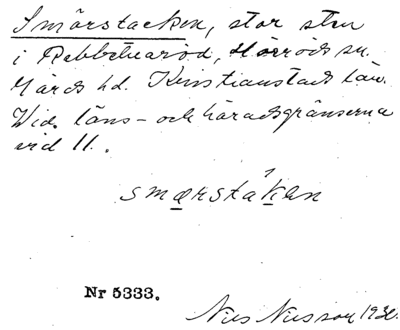 Smörstacken, stor sten
i Rebbetuaröd, Hörröds sn.
Gärds hd. Kristianstads län.
Vid läns- och häradsgränserna
vid 11.
smærstaken
Nr 5333.
Nils Nilsson 1930.